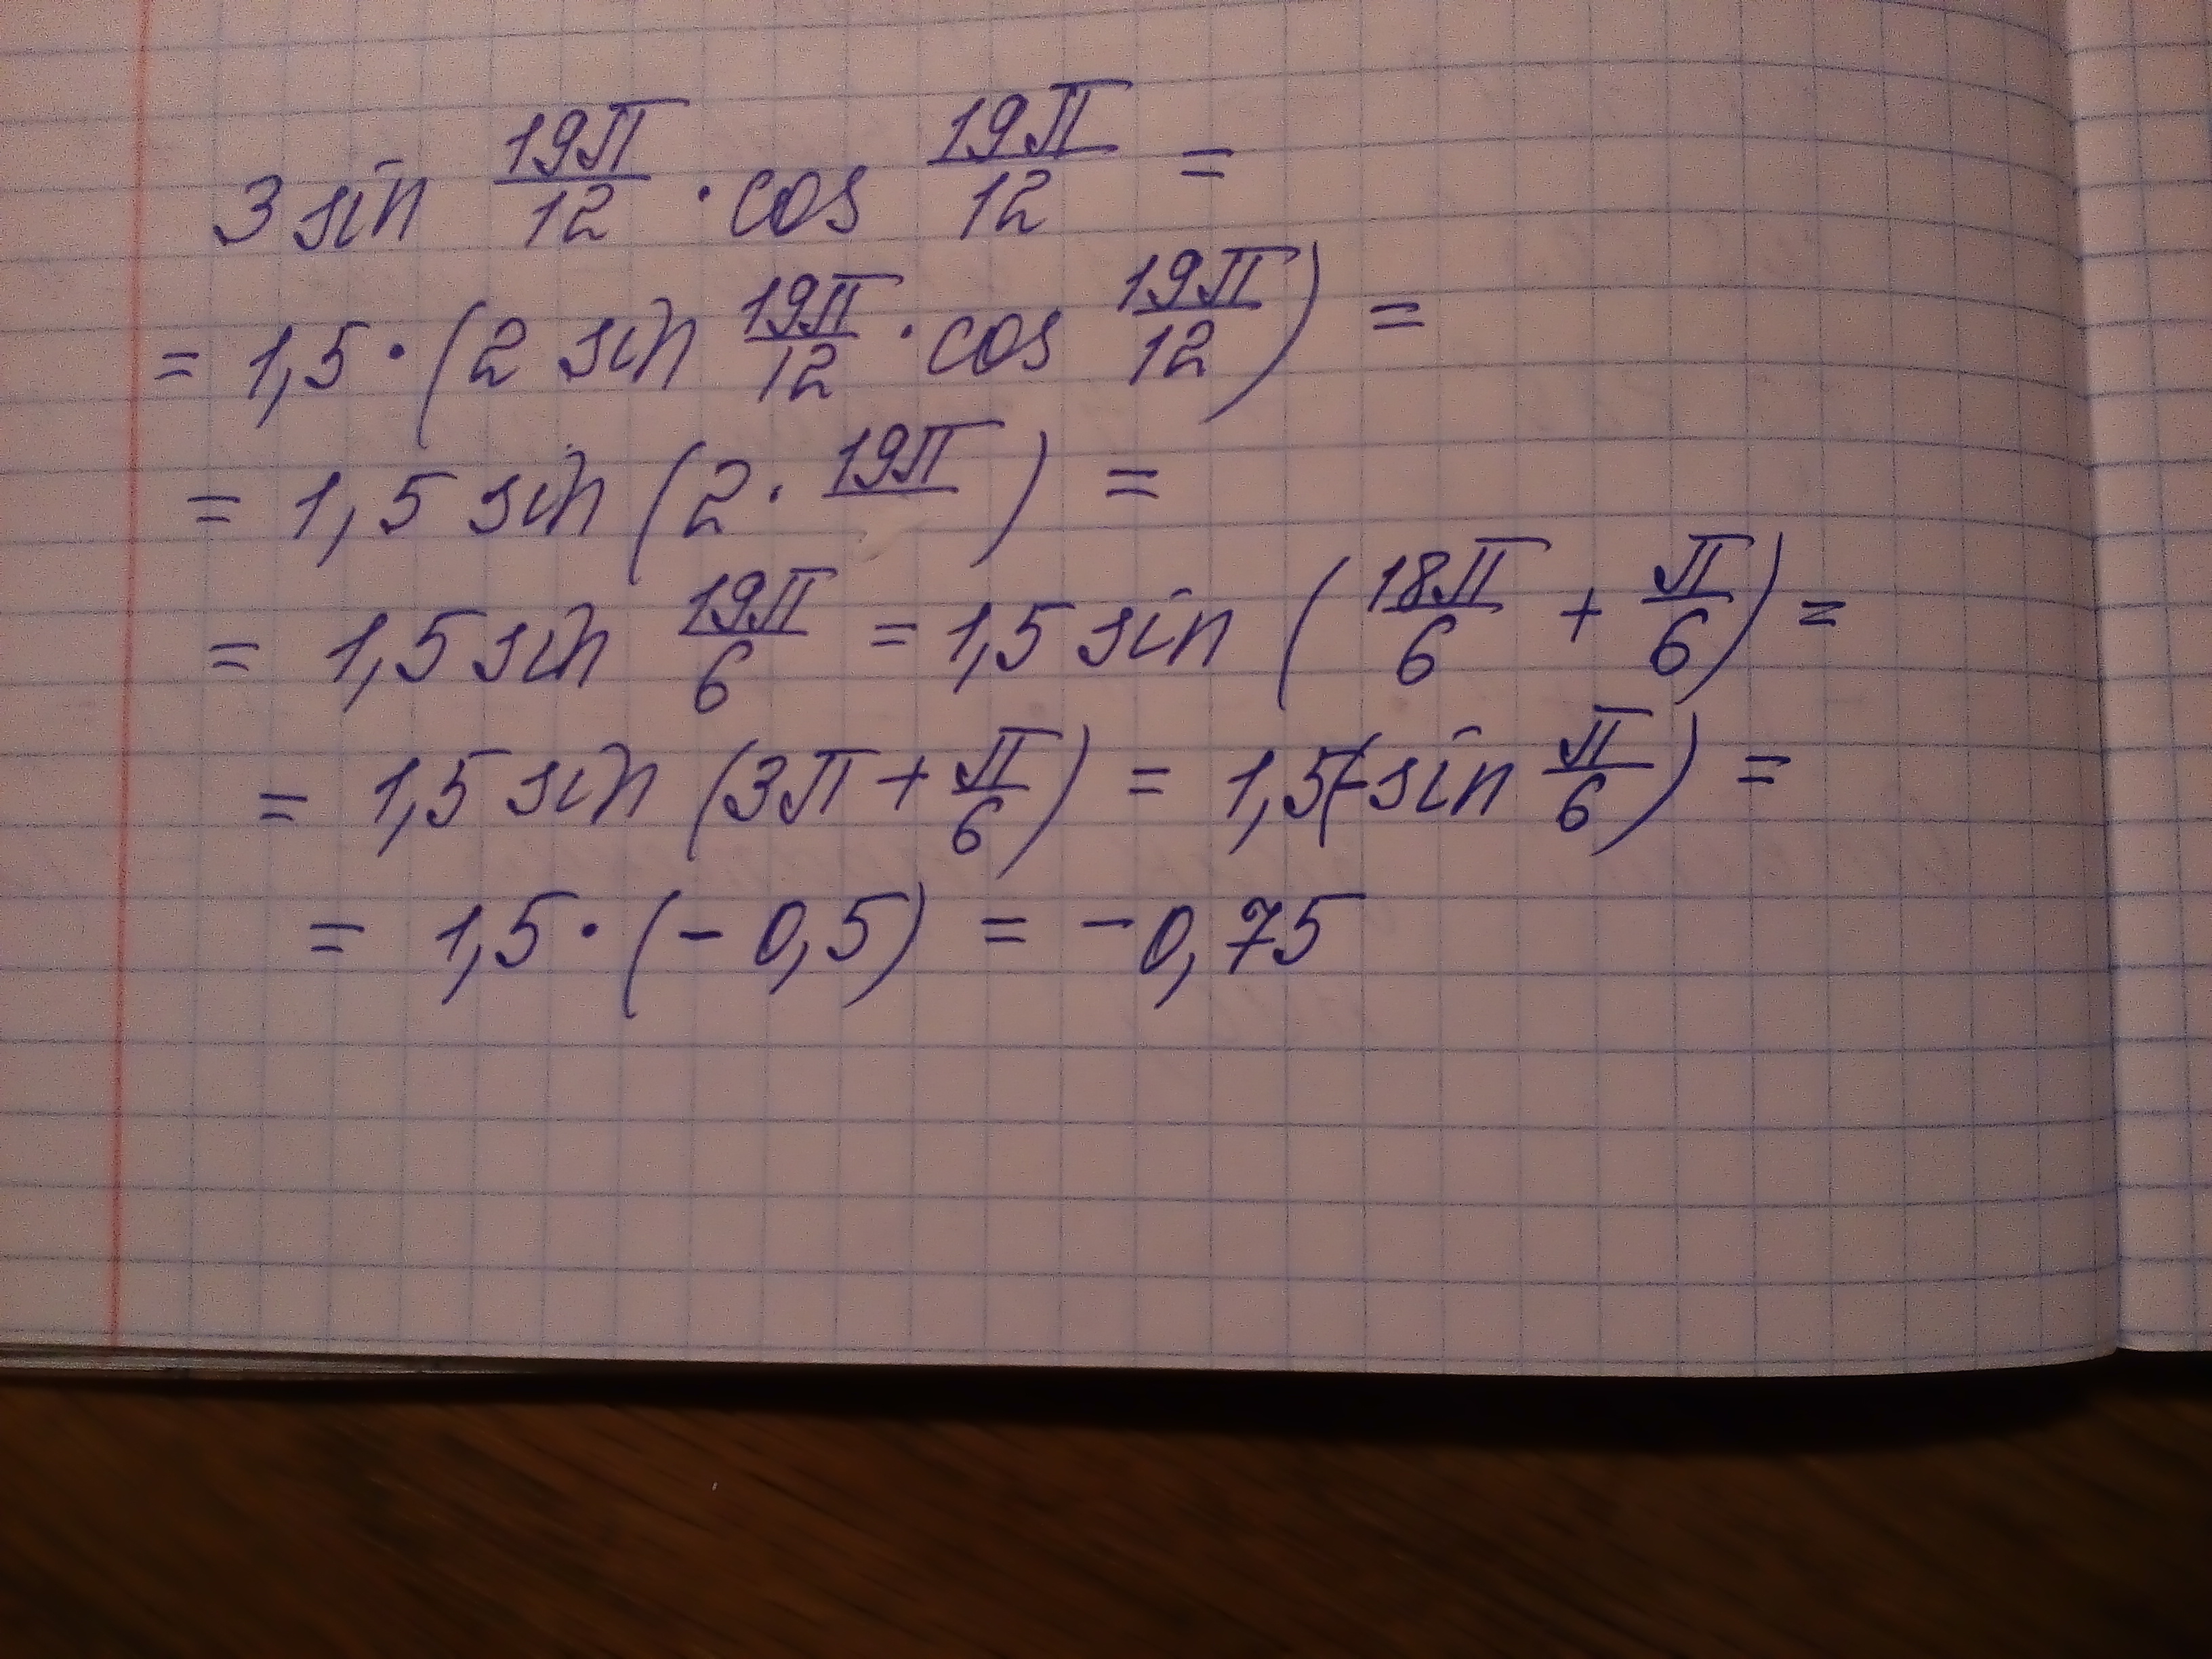 3 sin 19π/12 · cos 19π/12 =
= 1,5 · (2 sin 19π/12 · cos 19π/12) =
= 1,5 sin (2 · 19π/ ) =
= 1,5 sin 19π/6 = 1,5 sin (18π/6 + π/6) =
= 1,5 sin (3π + π/6) = 1,5(-sin π/6) =
= 1,5 · (- 0,5) = -0,75